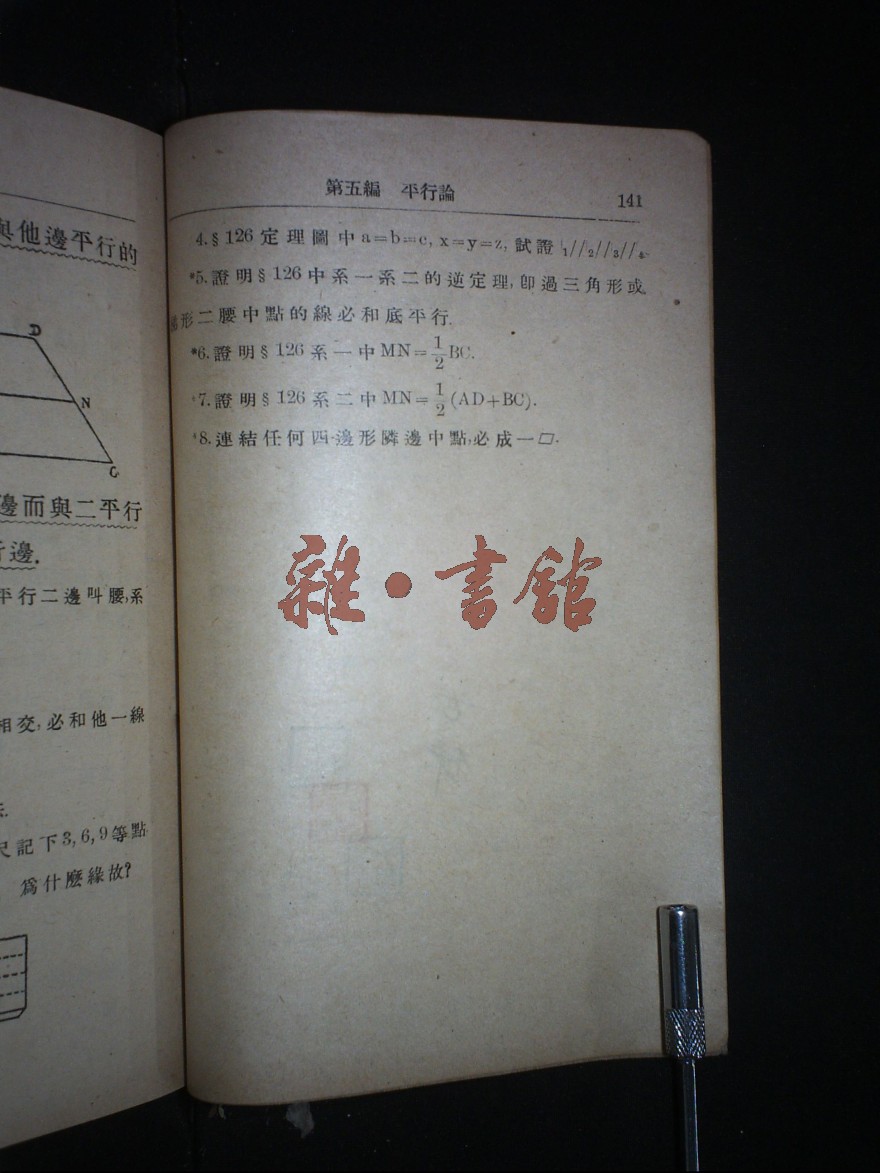 與他邊平行的
D
N
C
邊而與二平行
行邊.
平行二邊叫腰,系
相交,必和他一線
尺記下3,6,9等點
爲什麽緣故?
第五編 平行論 141
4.§126定理圖中a=b=c, x=y=z, 試證l₁//l₂//l₃//l₄.
*5.證明§126中系一系二的逆定理,卽過三角形或
梯形二腰中點的線必和底平行.
*6.證明§126系一中MN=1/2BC.
*7.證明§126系二中MN=1/2(AD+BC).
*8.連結任何四邊形隣邊中點,必成一▱.
雜·書館